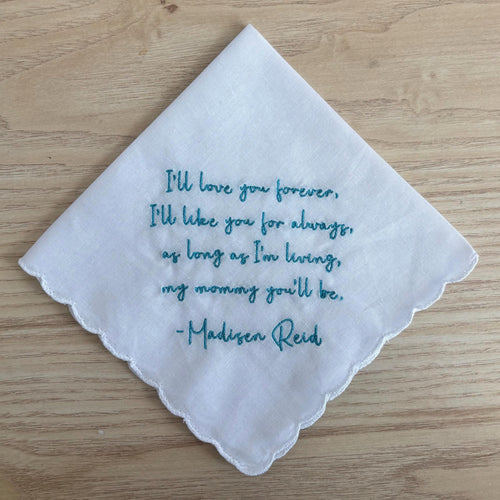 I'll love you forever,
I'll like you for always,
as long as I'm living,
my mommy you'll be.
-Madisen Reid